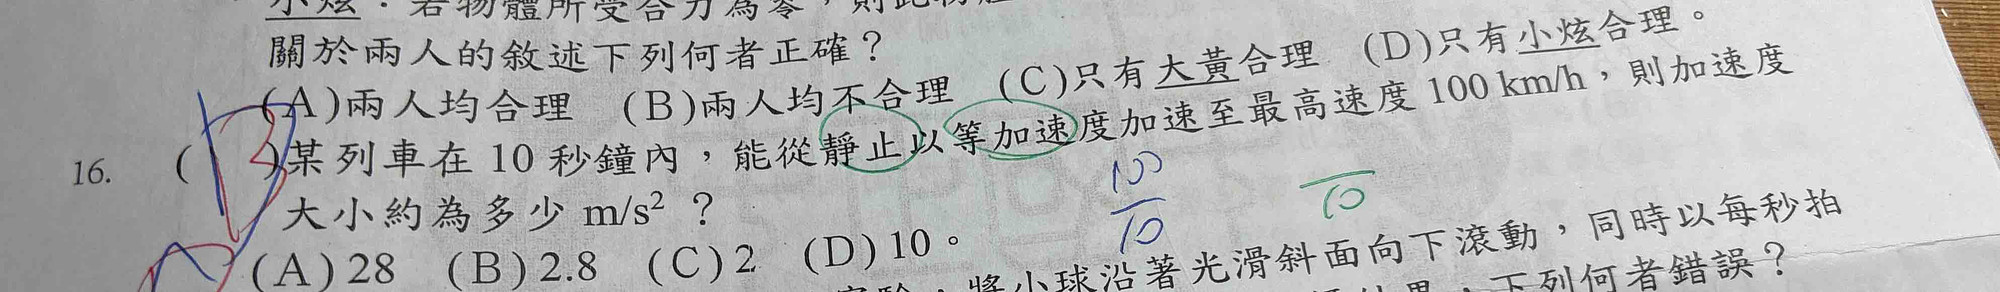 小炫：若物體所受合力為零，則此物
關於兩人的敘述下列何者正確？
(A)兩人均合理 (B)兩人均不合理 (C)只有大黃合理 (D)只有小炫合理。
16. ( )某列車在 10 秒鐘內，能從靜止以等加速度加速至最高速度 100 km/h，則加速度
大小約為多少 m/s² ？
100
10
10
(A)28 (B)2.8 (C)2 (D)10。
將小球沿著光滑斜面向下滾動，同時以每秒拍
下列何者錯誤？